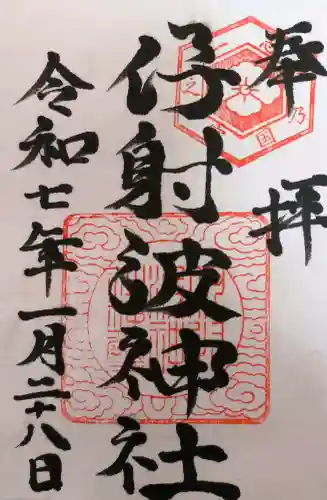 奉拝
伊射波神社
令和七年一月二十八日
乃
国
之